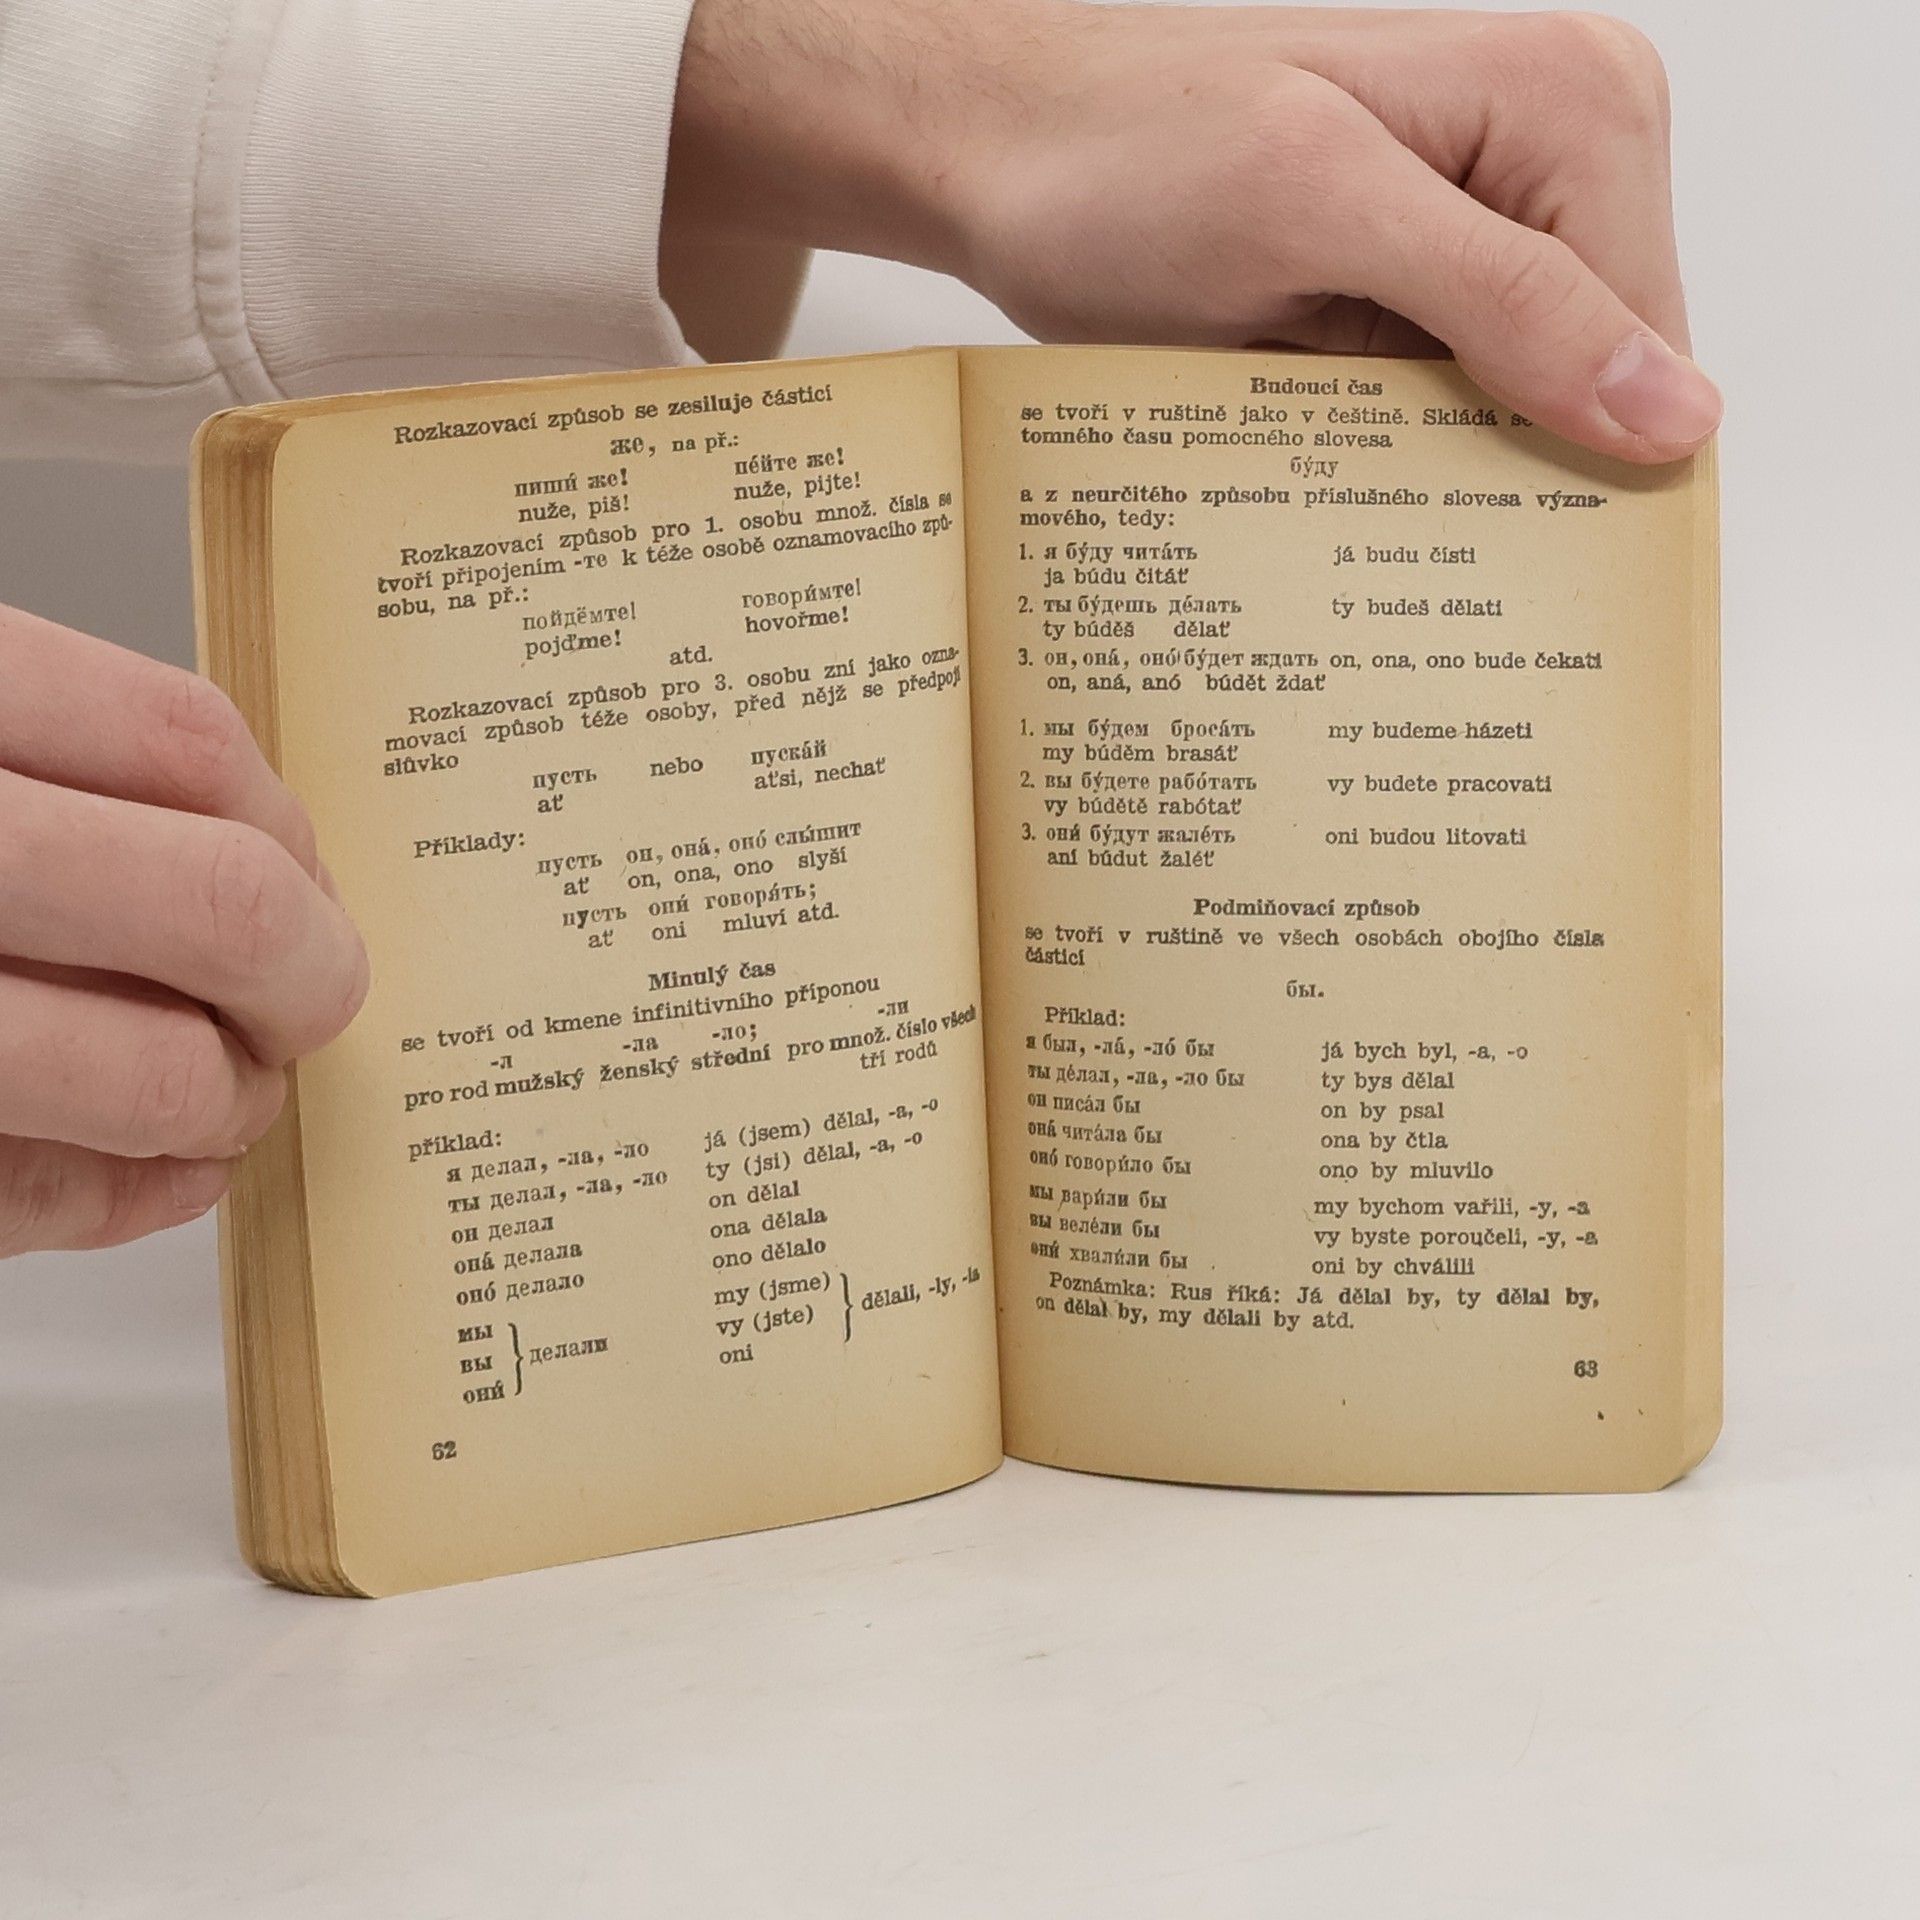 Rozkazovací způsob se zesiluje částicí
же, на př.:
пиши́ же! пе́йте же!
nuže, piš! nuže, pijte!
Rozkazovací způsob pro 1. osobu množ. čísla se
tvoří připojením -те k téže osobě oznamovacího způ-
sobu, na př.:
пойдёмте! говори́мте!
pojďme! hovořme!
atd.
Rozkazovací způsob pro 3. osobu zní jako ozna-
movací způsob téže osoby, před nějž se předpojí
slůvko
пусть nebo пуска́й
ať aťsi, nechať
Příklady:
пусть он, она́, оно́ слы́шит
ať on, ona, ono slyší
пусть они́ говоря́ть;
ať oni mluví atd.
Minulý čas
se tvoří od kmene infinitivního příponou
-л -ла -ло; -ли
pro rod mužský ženský střední pro množ. číslo všech
tří rodů
příklad:
я делал, -ла, -ло já (jsem) dělal, -a, -o
ты делал, -ла, -ло ty (jsi) dělal, -a, -o
он делал on dělal
она́ делала ona dělala
оно́ делало ono dělalo
мы my (jsme)
вы } делали vy (jste) } dělali, -ly, -la
они́ oni
62
Budoucí čas
se tvoří v ruštině jako v češtině. Skládá se
tomného času pomocného slovesa
бу́ду
a z neurčitého způsobu příslušného slovesa význa-
mového, tedy:
1. я бу́ду чита́ть já budu čísti
ja búdu čitáť
2. ты бу́дешь де́лать ty budeš dělati
ty búděš dělať
3. он, она́, оно́ бу́дет ждать on, ona, ono bude čekati
on, aná, anó búdět ždať
1. мы бу́дем броса́ть my budeme házeti
my búděm brasáť
2. вы бу́дете рабо́тать vy budete pracovati
vy búdětě rabótať
3. они́ бу́дут жале́ть oni budou litovati
aní búdut žaléť
Podmiňovací způsob
se tvoří v ruštině ve všech osobách obojího čísla
částicí
бы.
Příklad:
я был, -ла́, -ло́ бы já bych byl, -a, -o
ты де́лал, -ла, -ло бы ty bys dělal
он писа́л бы on by psal
она́ чита́ла бы ona by čtla
оно́ говори́ло бы ono by mluvilo
мы вари́ли бы my bychom vařili, -y, -a
вы веле́ли бы vy byste poroučeli, -y, -a
они́ хвали́ли бы oni by chválili
Poznámka: Rus říká: Já dělal by, ty dělal by,
on dělal by, my dělali by atd.
63